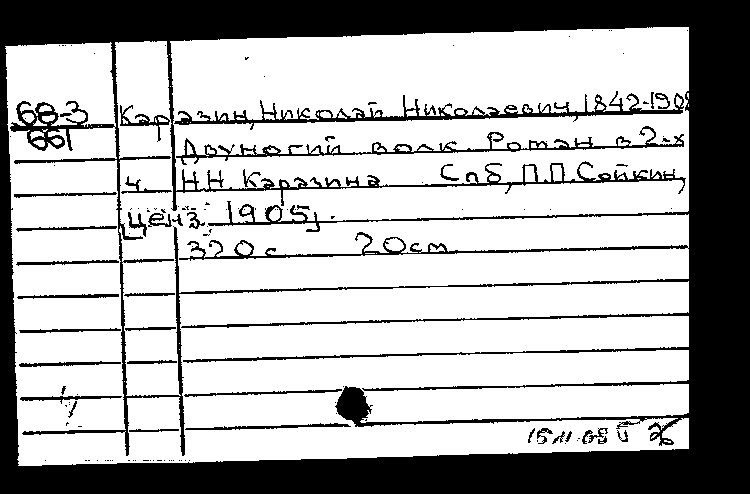 68-3 Каразин, Николай Николаевич, 1842-1908
661 Двуногий волк. Роман в 2-х
ч. Н.Н. Каразина Спб, П.П. Сойкин,
[ценз. 1905].
320 с 20 см